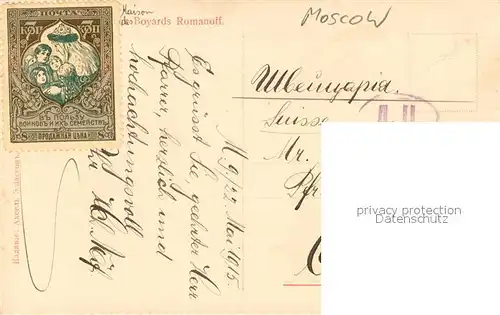 Maison
Boyards Romanoff.
MOSCOW
ПОЧТА
3 КОП 3 КОП
ВЪ ПОЛЬЗУ
ВОИНОВЪ И ИХЪ СЕМЕЙСТВЪ
ПРОДАЖНАЯ ЦѢНА
Швейцарія.
Suisse
Mr.
Pfr
M. 9/22. Mai 1915.
Es grüsst Sie, geehrter Herr
Pfarrer, herzlich und
hochachtungsvoll
privacy protection
Datenschutz